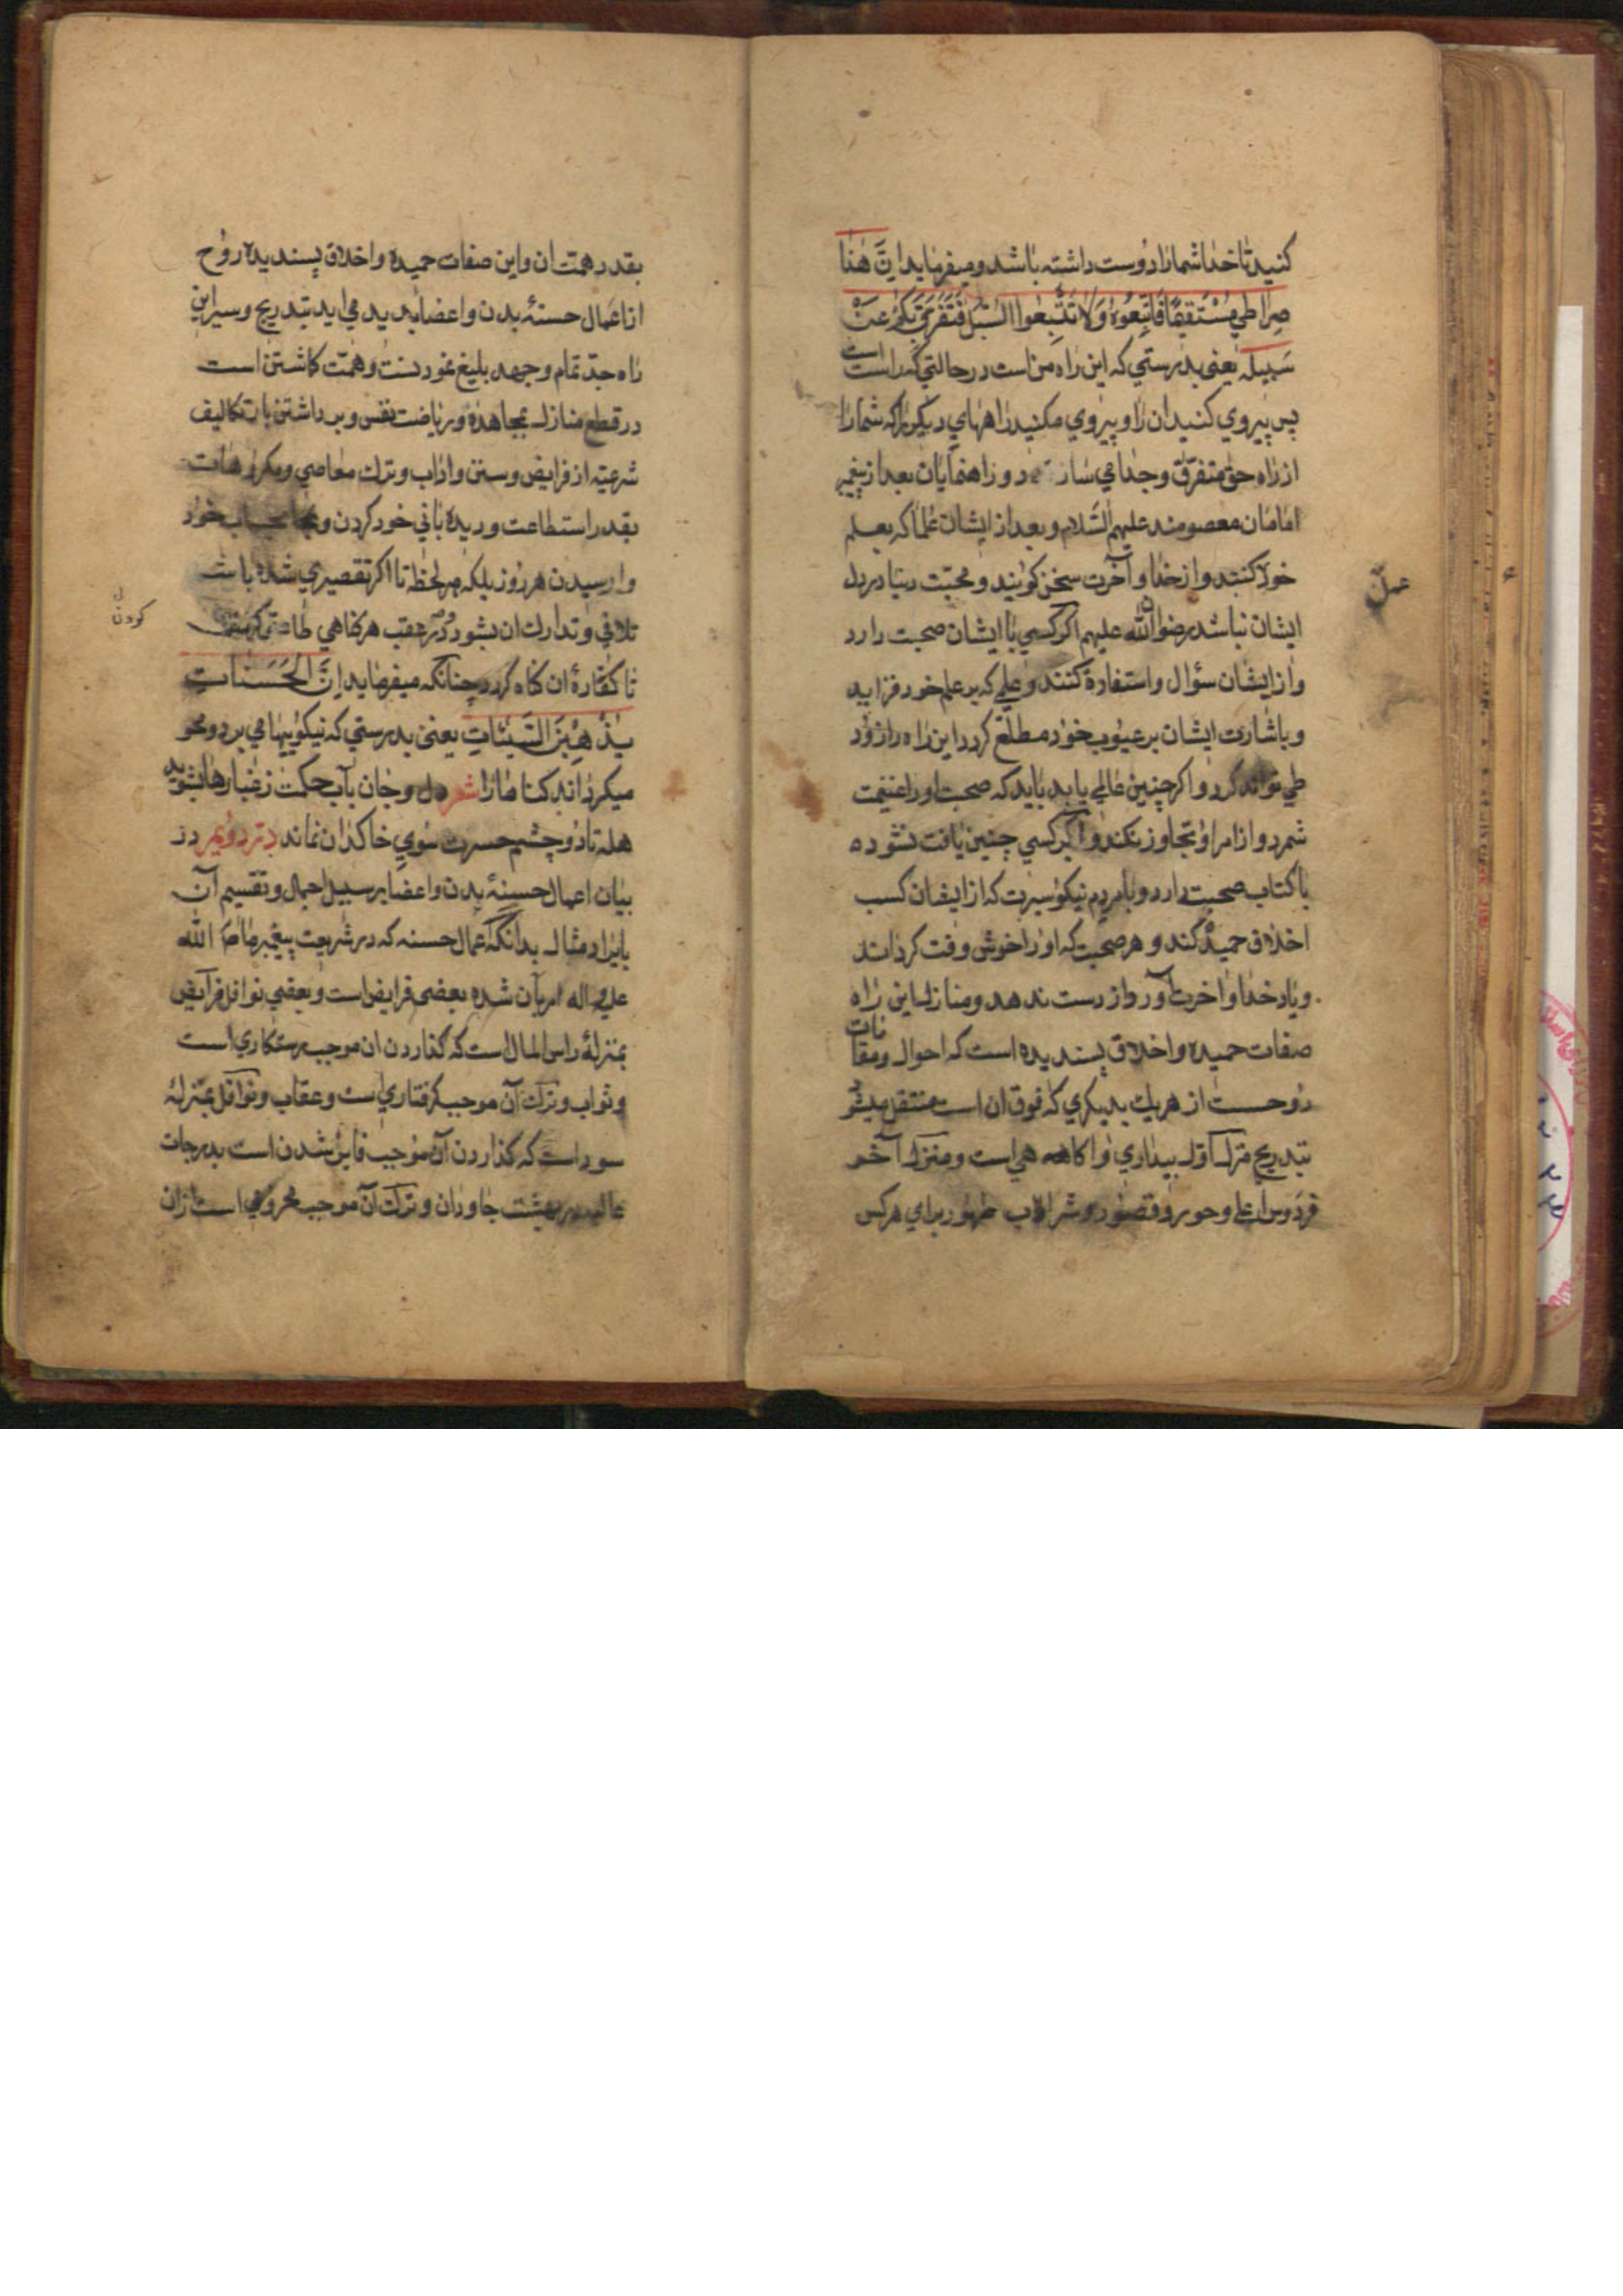 کنید تا خدا شما را دوست داشته باشد و میفرماید اِنَّ هٰذا
صِراطی مُسْتَقیمًا فَاتَّبِعُوهُ وَلا تَتَّبِعُوا السُّبُلَ فَتَفَرَّقَ بِکُمْ عَنْ
سَبیلِه یعنی بدرستی که این راه من است در حالتی که راست است
پس پیروی کنید ان را و پیروی مکنید راههای دیگر را که شما را
از راه حق متفرّق و جدا می سازد و راهنمایان بعد از پیغمبر
امامان معصومند علیهم السّلام و بعد از ایشان علما که بعلم
خود کنند و از خدا و آخرت سخن کویند و محبّت دنیا در دل
عمل
ایشان نباشد رضوان الله علیهم اکر کسی با ایشان صحبت دارد
و از ایشان سؤال و استفاده کنند و علمی که بر علم خود فزاید
و باشارت ایشان بر عیوب خود مطلّع کردد این راه را زود
طی تواند کرد و اکر چنین عالمی یابد باید که صحبت او را غنیمت
شمرد و از امر او تجاوز نکند و اکر کسی چنین یافت نشود
با کتاب صحبت دارد و با مردم نیکو سیرت که از ایشان کسب
اخلاق حمیده کند و هر صحبت که او را خوش وقت کرداند
و یاد خدا و اخرت آورد از دست ندهد و منازل این راه
صفات حمیده و اخلاق پسندیده است که احوال و مقامات
روحست از هر یک بدیکری که فوق ان است منتقل میشود
بتدریج منزل اوّل بیداری و اکاهی است و منزل آخر
فردوس اعلی و حور و قصور و شراب طهور برای هر کس
بقدر همّت ان و این صفات حمیده و اخلاق پسندیده روح
از اعمال حسنۀ بدن و اعضا پدید می اید بتدریج و سیر این
راه جدّ تمام و جهد بلیغ نمودنست و همّت کاشتن است
در قطع منازل بمجاهدۀ و ریاضت نفس و برداشتن بار تکالیف
شرعیّه از فرایض و سنن و اداب و ترک معاصی و مکروهات
بقدر استطاعت و دیده بانی خود کردن و بحساب خود
وارسیدن هر روز بلکه هر لحظه تا اکر تقصیری شده باشد
تلافی و تدارک ان بشود و در عقب هر کناهی طاعتی
کردن
تا کفّارۀ ان کناه کردد چنانکه میفرماید اِنَّ الْحَسَناتِ
یُذْهِبْنَ السَّیِّئاتِ یعنی بدرستی که نیکوییها می برد و محو
میکرداند کناها را شعر دل و جان بآب حکمت ز غبارها بشوید
هله تا دو چشم حسرت سوی خاکدان نماند در دویم در
بیان اعمال حسنۀ بدن و اعضا بر سبیل اجمال و تقسیم آن
بایراد مثال بدانکه اعمال حسنه که در شریعت پیغمبر ما صلّی الله
علیه و اله امر بآن شده بعضی فرایض است و بعضی نوافل فرایض
بمنزلۀ راس المال است که کذاردن ان موجب رستکاری است
و ثواب و ترک آن موجب کرفتاری است و عقاب و نوافل بمنزلۀ
سود است که کذاردن آن موجب فایز شدن است بدرجات
عالیه در بهشت جاودان و ترک آن موجب محرومی است از ان